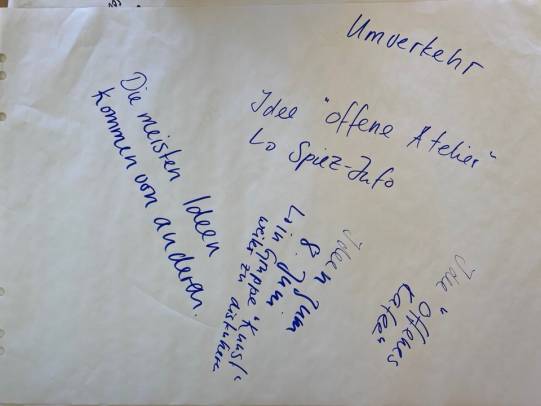 Umverkehr
Idee "offene Atelier"
↳ Spiez-Info
Die meisten Ideen
kommen von anderen.
Ideen zum
8. Juni
↳ in Gruppe "Kunst"
weiter zu diskutieren
Idee "Offenes
Kafee"